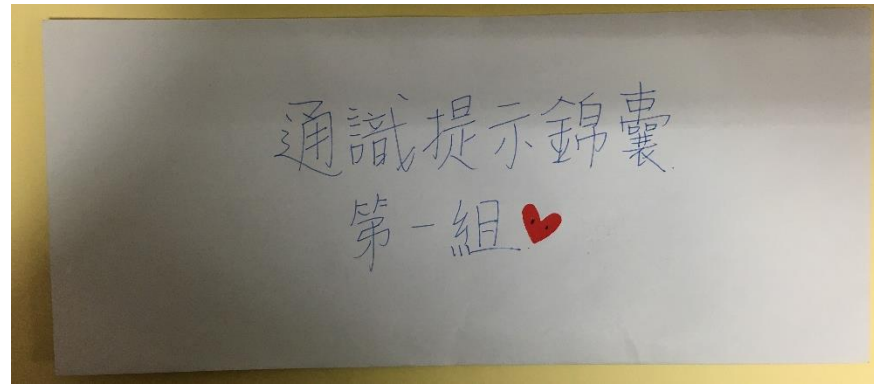 通識提示錦囊
第一組